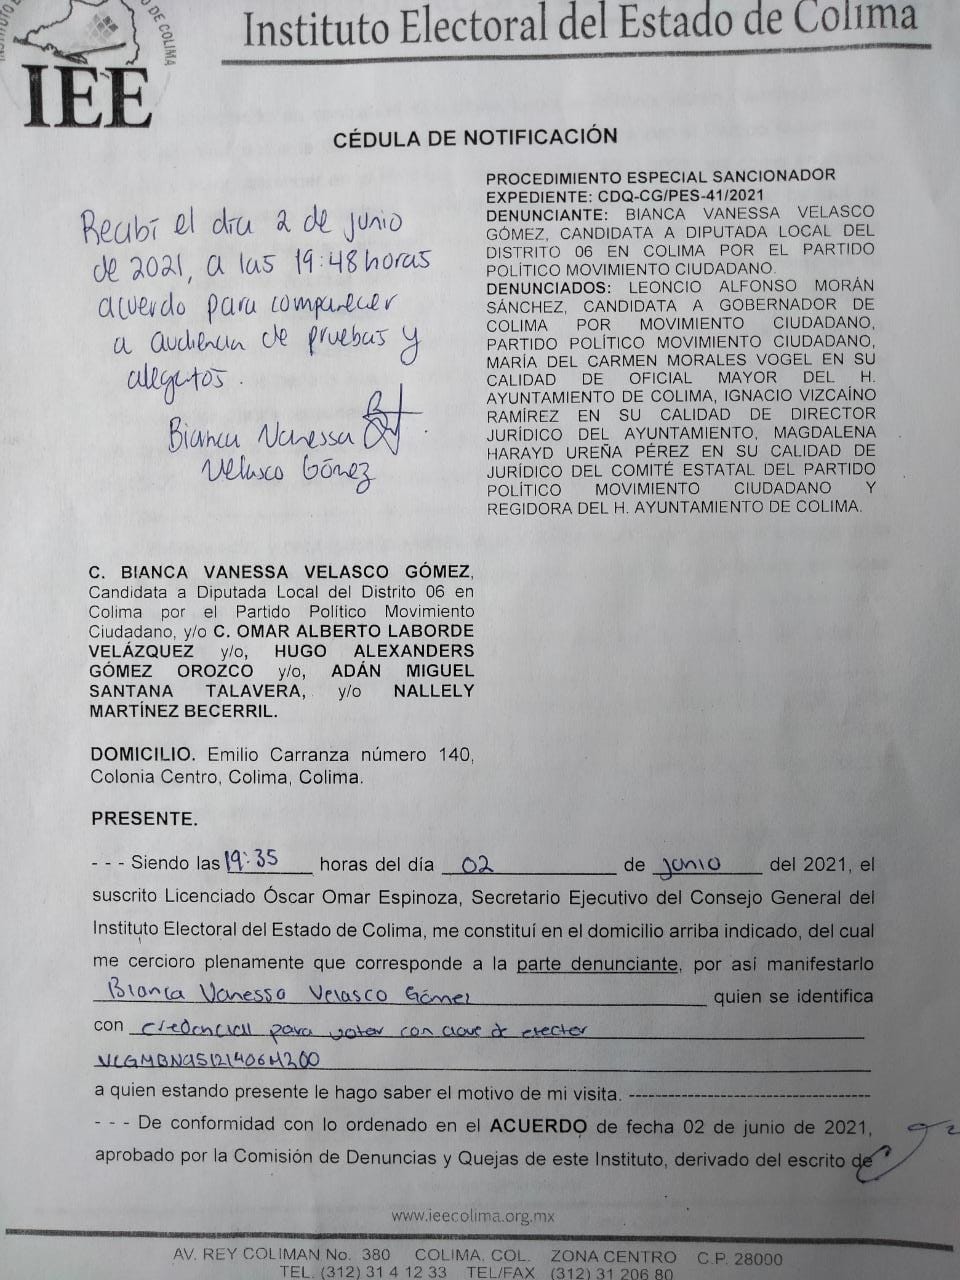 Instituto Electoral del Estado de Colima
DE COLIMA
IEE
CÉDULA DE NOTIFICACIÓN
Recibí el día 2 de junio
de 2021, a las 19:48 horas
acuerdo para comparecer
a audiencia de pruebas y
alegatos.
Bianca Vanessa
Velasco Gómez
PROCEDIMIENTO ESPECIAL SANCIONADOR
EXPEDIENTE: CDQ-CG/PES-41/2021
DENUNCIANTE: BIANCA VANESSA VELASCO
GÓMEZ, CANDIDATA A DIPUTADA LOCAL DEL
DISTRITO 06 EN COLIMA POR EL PARTIDO
POLÍTICO MOVIMIENTO CIUDADANO.
DENUNCIADOS: LEONCIO ALFONSO MORÁN
SÁNCHEZ, CANDIDATA A GOBERNADOR DE
COLIMA POR MOVIMIENTO CIUDADANO,
PARTIDO POLÍTICO MOVIMIENTO CIUDADANO,
MARÍA DEL CARMEN MORALES VOGEL EN SU
CALIDAD DE OFICIAL MAYOR DEL H.
AYUNTAMIENTO DE COLIMA, IGNACIO VIZCAÍNO
RAMÍREZ EN SU CALIDAD DE DIRECTOR
JURÍDICO DEL AYUNTAMIENTO, MAGDALENA
HARAYD UREÑA PÉREZ EN SU CALIDAD DE
JURÍDICO DEL COMITÉ ESTATAL DEL PARTIDO
POLÍTICO MOVIMIENTO CIUDADANO Y
REGIDORA DEL H. AYUNTAMIENTO DE COLIMA.
C. BIANCA VANESSA VELASCO GÓMEZ,
Candidata a Diputada Local del Distrito 06 en
Colima por el Partido Político Movimiento
Ciudadano, y/o C. OMAR ALBERTO LABORDE
VELÁZQUEZ y/o, HUGO ALEXANDERS
GÓMEZ OROZCO y/o, ADÁN MIGUEL
SANTANA TALAVERA, y/o NALLELY
MARTÍNEZ BECERRIL.
DOMICILIO. Emilio Carranza número 140,
Colonia Centro, Colima, Colima.
PRESENTE.
- - - Siendo las 19:35 horas del día 02 de junio del 2021, el
suscrito Licenciado Óscar Omar Espinoza, Secretario Ejecutivo del Consejo General del
Instituto Electoral del Estado de Colima, me constituí en el domicilio arriba indicado, del cual
me cercioro plenamente que corresponde a la parte denunciante, por así manifestarlo
Bianca Vanessa Velasco Gómez quien se identifica
con credencial para votar con clave de elector
VLGMBN95121406M200
a quien estando presente le hago saber el motivo de mi visita. ------------------------------------
- - - De conformidad con lo ordenado en el ACUERDO de fecha 02 de junio de 2021,
aprobado por la Comisión de Denuncias y Quejas de este Instituto, derivado del escrito de
www.ieecolima.org.mx
AV. REY COLIMAN No. 380 COLIMA, COL. ZONA CENTRO C.P. 28000
TEL. (312) 31 4 12 33 TEL/FAX (312) 31 206 80